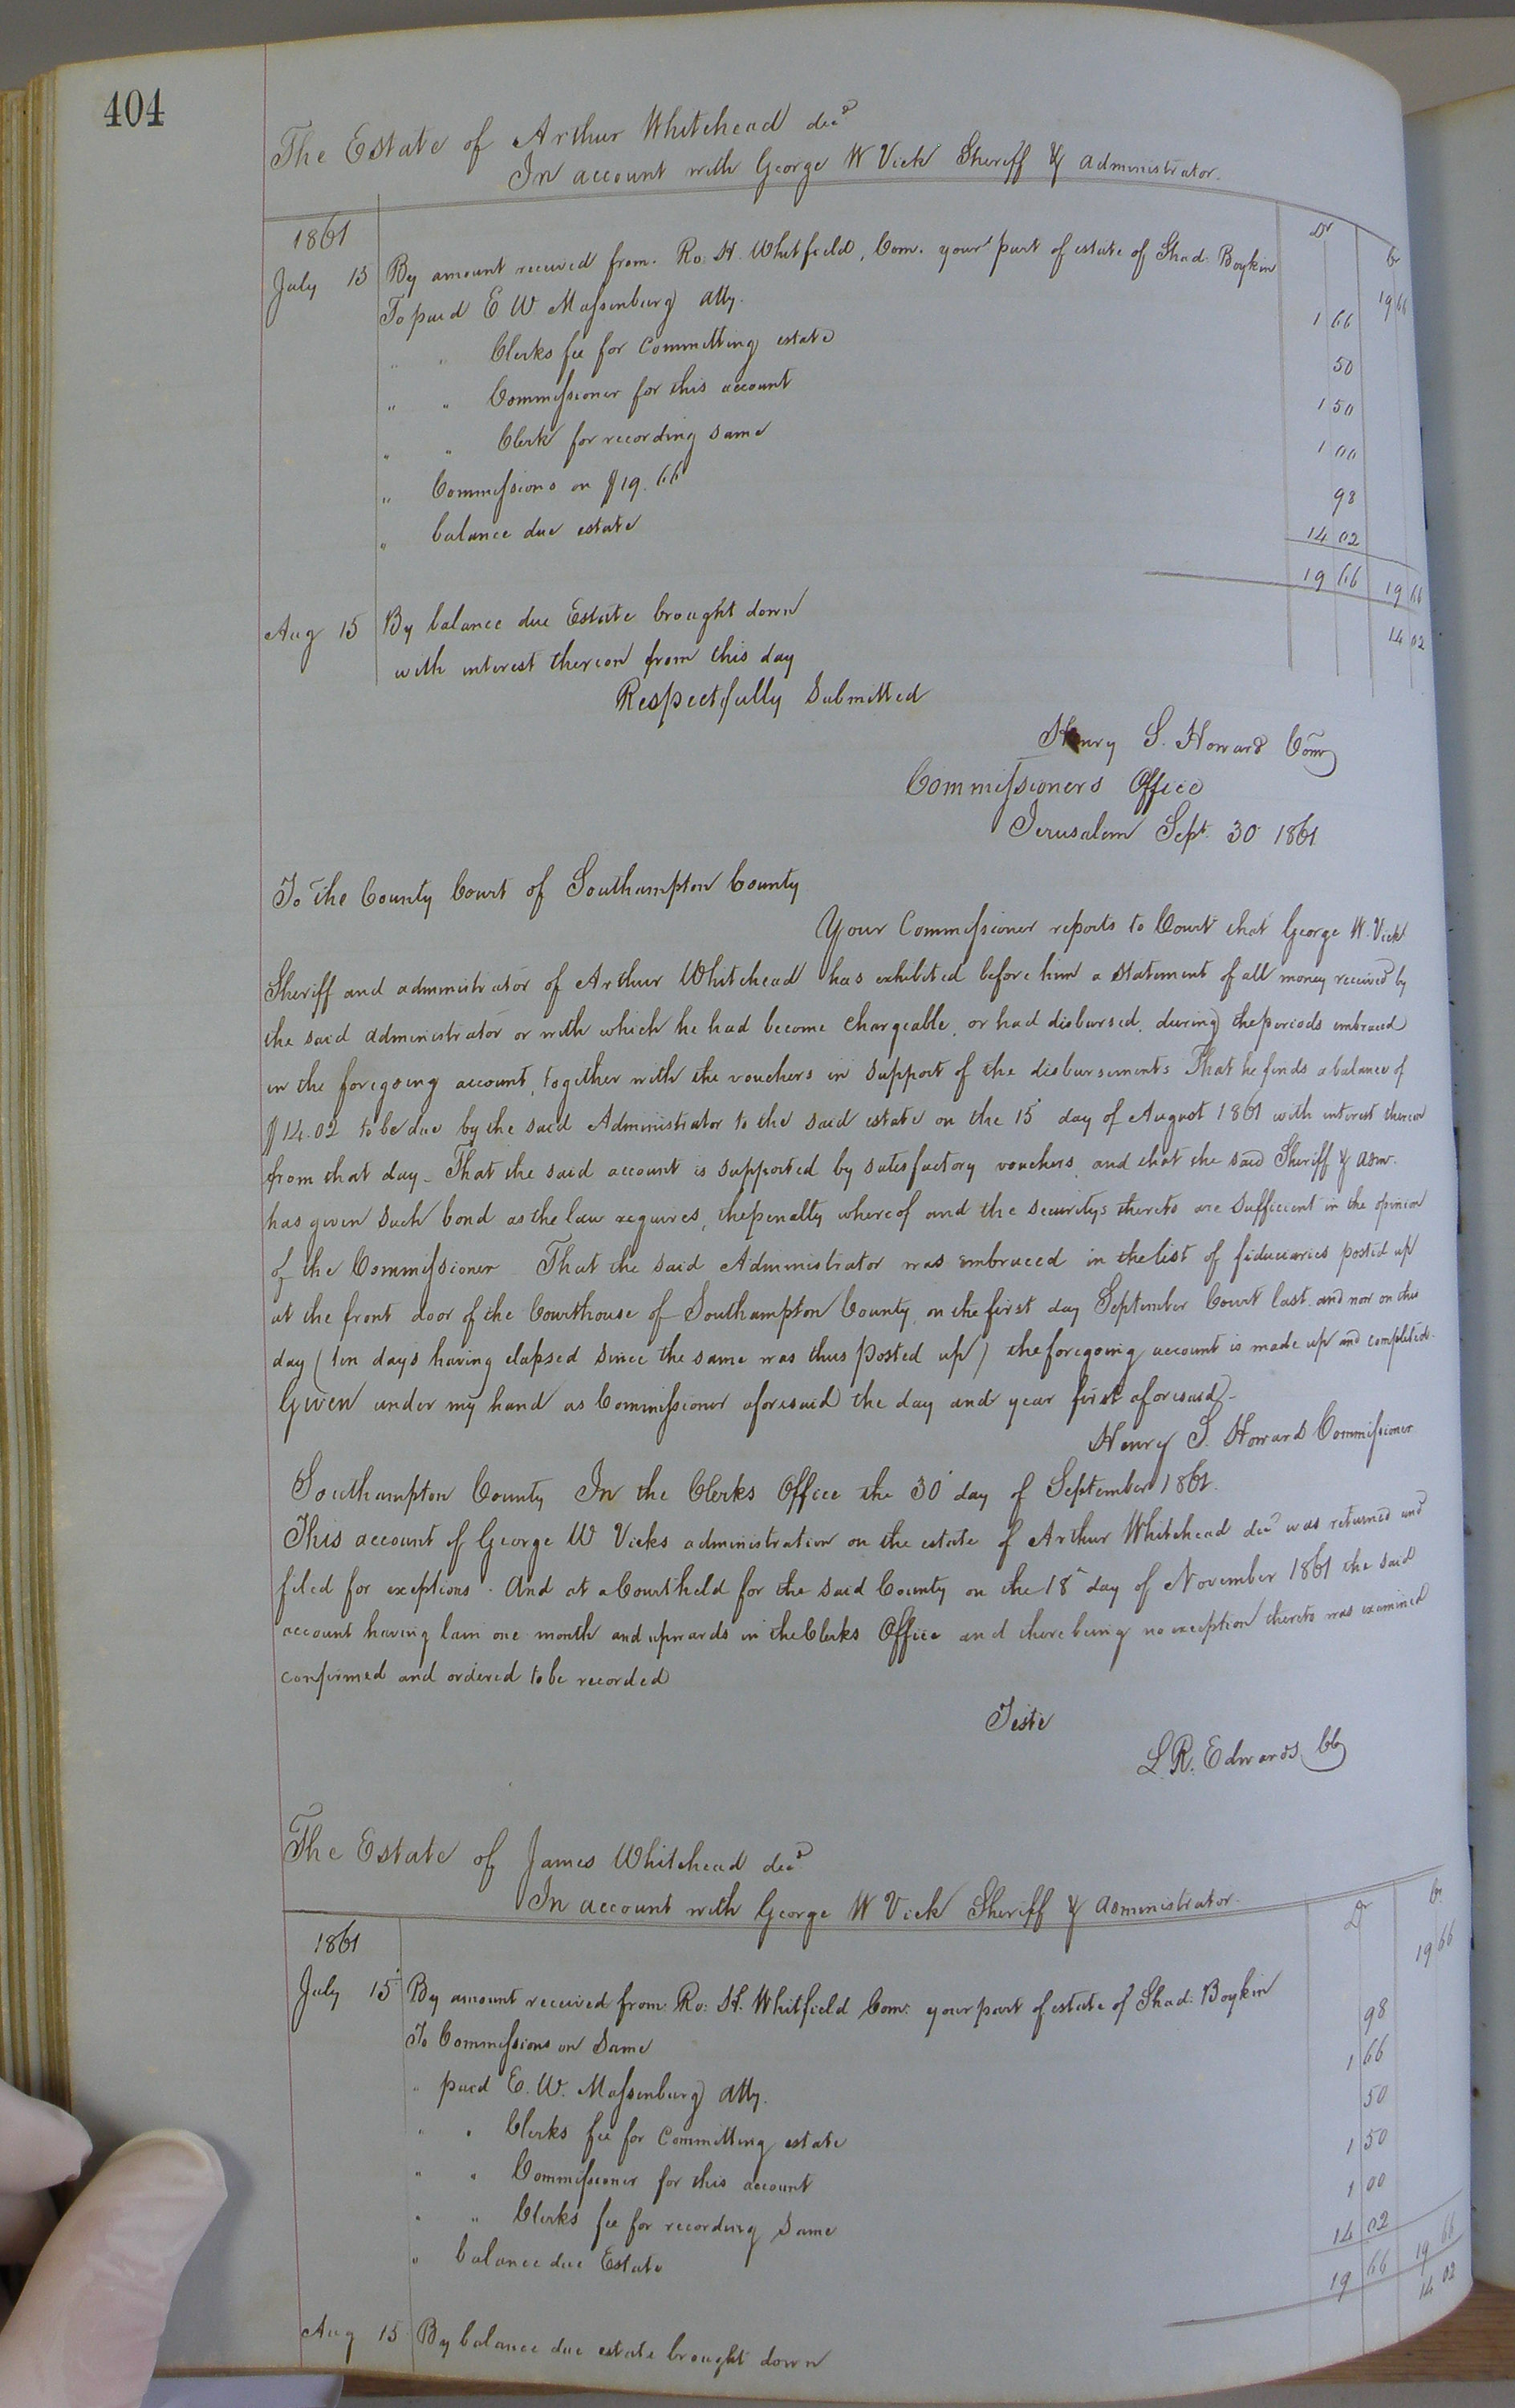 404
The Estate of Arthur Whitehead decd
In account with George W Vick Sheriff & administrator.
1861 Dr Cr
July 15 By amount received from Ro: H. Whitfield, Com. your part of estate of Shad: Boykin 19 66
To paid E W. Massenburg atty. 1 66
" " Clerks fee for Committing estate 50
" " Commissioner for this account 1 50
" " Clerk for recording same 1 00
" Commissions on $19.66 98
" balance due estate 14 02
19 66 19 66
Aug 15 By balance due Estate brought down 14 02
with interest thereon from this day
Respectfully Submitted
Henry S. Howard Comr
Commissioners Office
Jerusalem Sept. 30 1861
To the County Court of Southampton County
Your Commissioner reports to Court that George W. Vick
Sheriff and administrator of Arthur Whitehead has exhibited before him a statement of all money received by
the said administrator or with which he had become chargeable, or had disbursed, during the periods embraced
in the foregoing account, together with the vouchers in support of the disbursements That he finds a balance of
$14.02 to be due by the said Administrator to the said estate on the 15 day of August 1861 with interest thereon
from that day - That the said account is supported by satisfactory vouchers and that the said Sheriff & adm.
has given such bond as the law requires, the penalty whereof and the securitys thereto are sufficient in the opinion
of the Commissioner That the said Administrator was embraced in the list of fiduciaries posted up
at the front door of the Courthouse of Southampton County, on the first day September Court last. and nor on this
day (ten days having elapsed since the same was thus posted up) the foregoing account is made up and completed.
Given under my hand as Commissioner aforesaid the day and year first aforesaid -
Henry S. Howard Commissioner
Southampton County In the Clerks Office the 30 day of September 1861.
This account of George W Vicks administration on the estate of Arthur Whitehead decd was returned and
filed for exeptions. And at a Court held for the said County on the 18th day of November 1861 the said
account having lain one month and upwards in the Clerks Office and there being no exception thereto was examined
confirmed and ordered to be recorded
Teste
L. R. Edwards Clk
The Estate of James Whitehead decd
In account with George W Vick Sheriff & administrator.
1861 Dr Cr
July 15 By amount received from: Ro: H. Whitfield Com: your part of estate of Shad: Boykin 19 66
To Commissions on Same 98
" paid E. W. Massenburg atty. 1 66
" " Clerks fee for Committing estate 50
" " Commissioner for this account 1 50
" " Clerks fee for recording Same 1 00
" balance due Estate 14 02
19 66 19 66
Aug 15 By balance due estate brought down 14 02